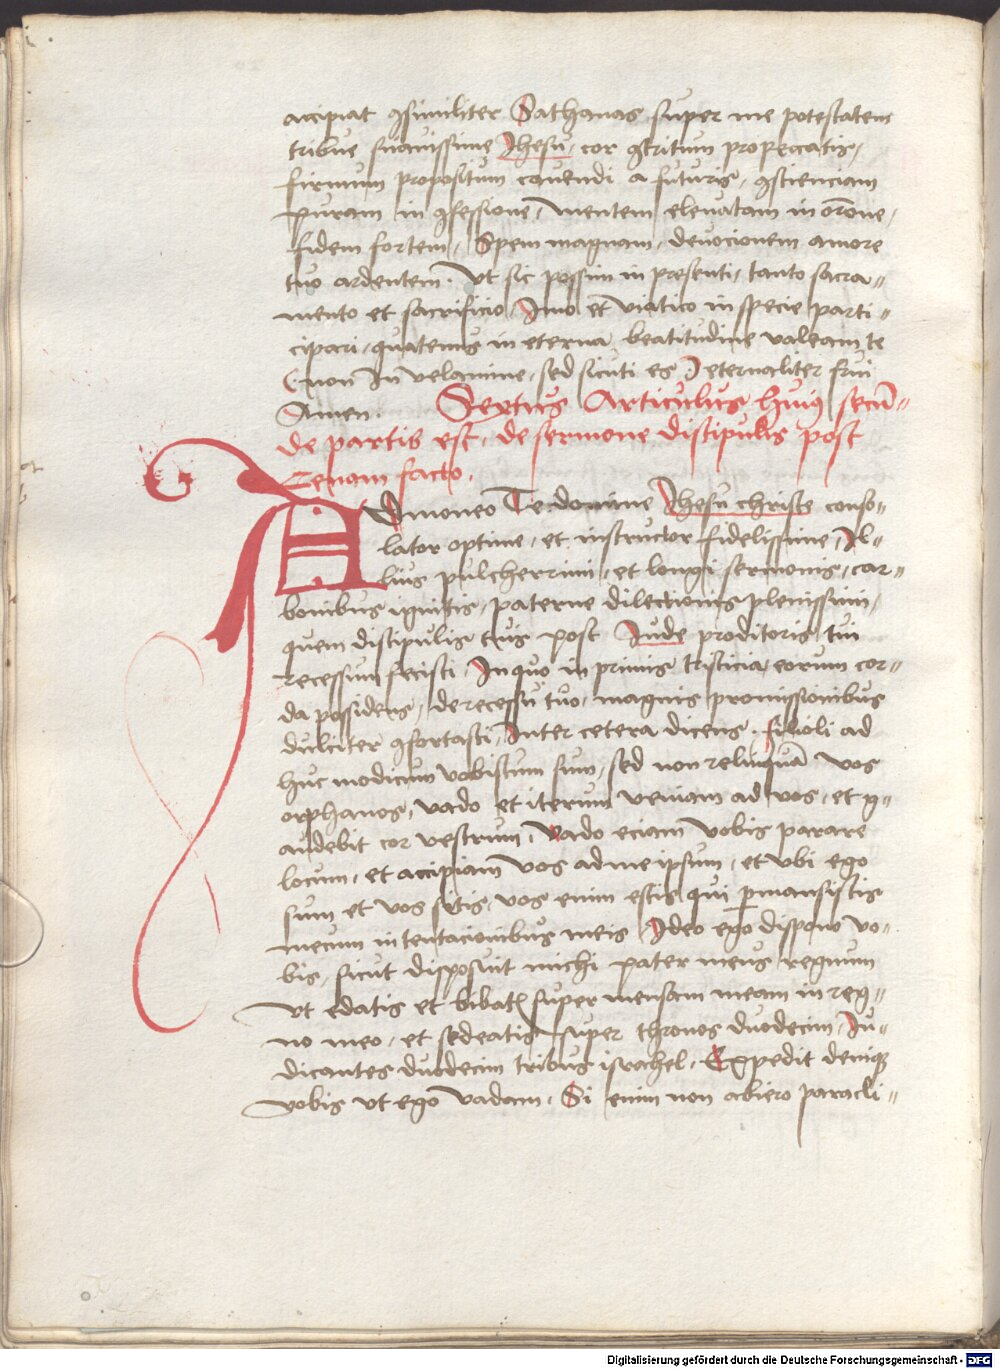 accipiat ꝯsimiliter Sathanas super me potestatem
tribue suauissime Jhesu, cor ꝯtritum pro peccatis,
firmum propositum cauendi a futuris, ꝯscienciam
puram in ꝯfessione, mentem eleuatam in oröne,
fidem fortem, Spem magnam, deuocionem amore
tuo ardentem. Vt sic possim in presenti, tanto sacra=
mento et sacrificio, Imo et viatico in specie parti=
cipari, quatenus in eterna beatitudine valeam te
non In velamine, sed sicuti es Jeternaliter frui
Amen. Sextus Articulus huiꝯ secū=
de partis est, de sermone discipulis post
Cenam facto.
Admoneo Te domine Jhesu christe conso=
lator optime, et instructor fidelissime, Il=
lius pulcherrimi, et longi sermonis, car=
bonibus ignitis, paterne dilectionis plenissimi,
quem discipulis tuis post Jude proditoris tui
recessum fecisti, In quo in primis tristicia, eorum cor=
da possidens, de recessu tuo, magnis promissionibus
dulciter ꝯfortasti, Inter cetera dicens. filioli ad
huc modicum vobiscum sum, sed non relinquā vos
orphanos, vado et iterum veniam ad vos, et g=
audebit cor vestrum, Vado eciam vobis parare
locum, et accipiam vos ad me ipsum, et vbi ego
sum et vos sitis, vos enim estis qui ꝑmansistis
mecum in tentacionibus meis, Ideo ego dispono vo=
bis, sicut disposuit michi pater meus regnum
Vt edatis et bibatꝭ super mensam meam in reg=
no meo, et sedeatis super thronos duodecim, Iu=
dicantes duodecim tribus israhel, Expedit deniqꝫ
vobis vt ego vadam, Si enim non abiero paracli=
Digitalisierung gefördert durch die Deutsche Forschungsgemeinschaft - DFG